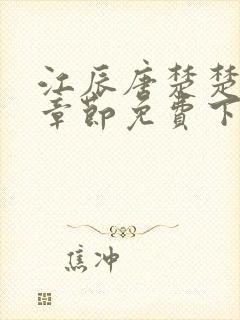 江辰唐楚楚
章节免费下
焦冲